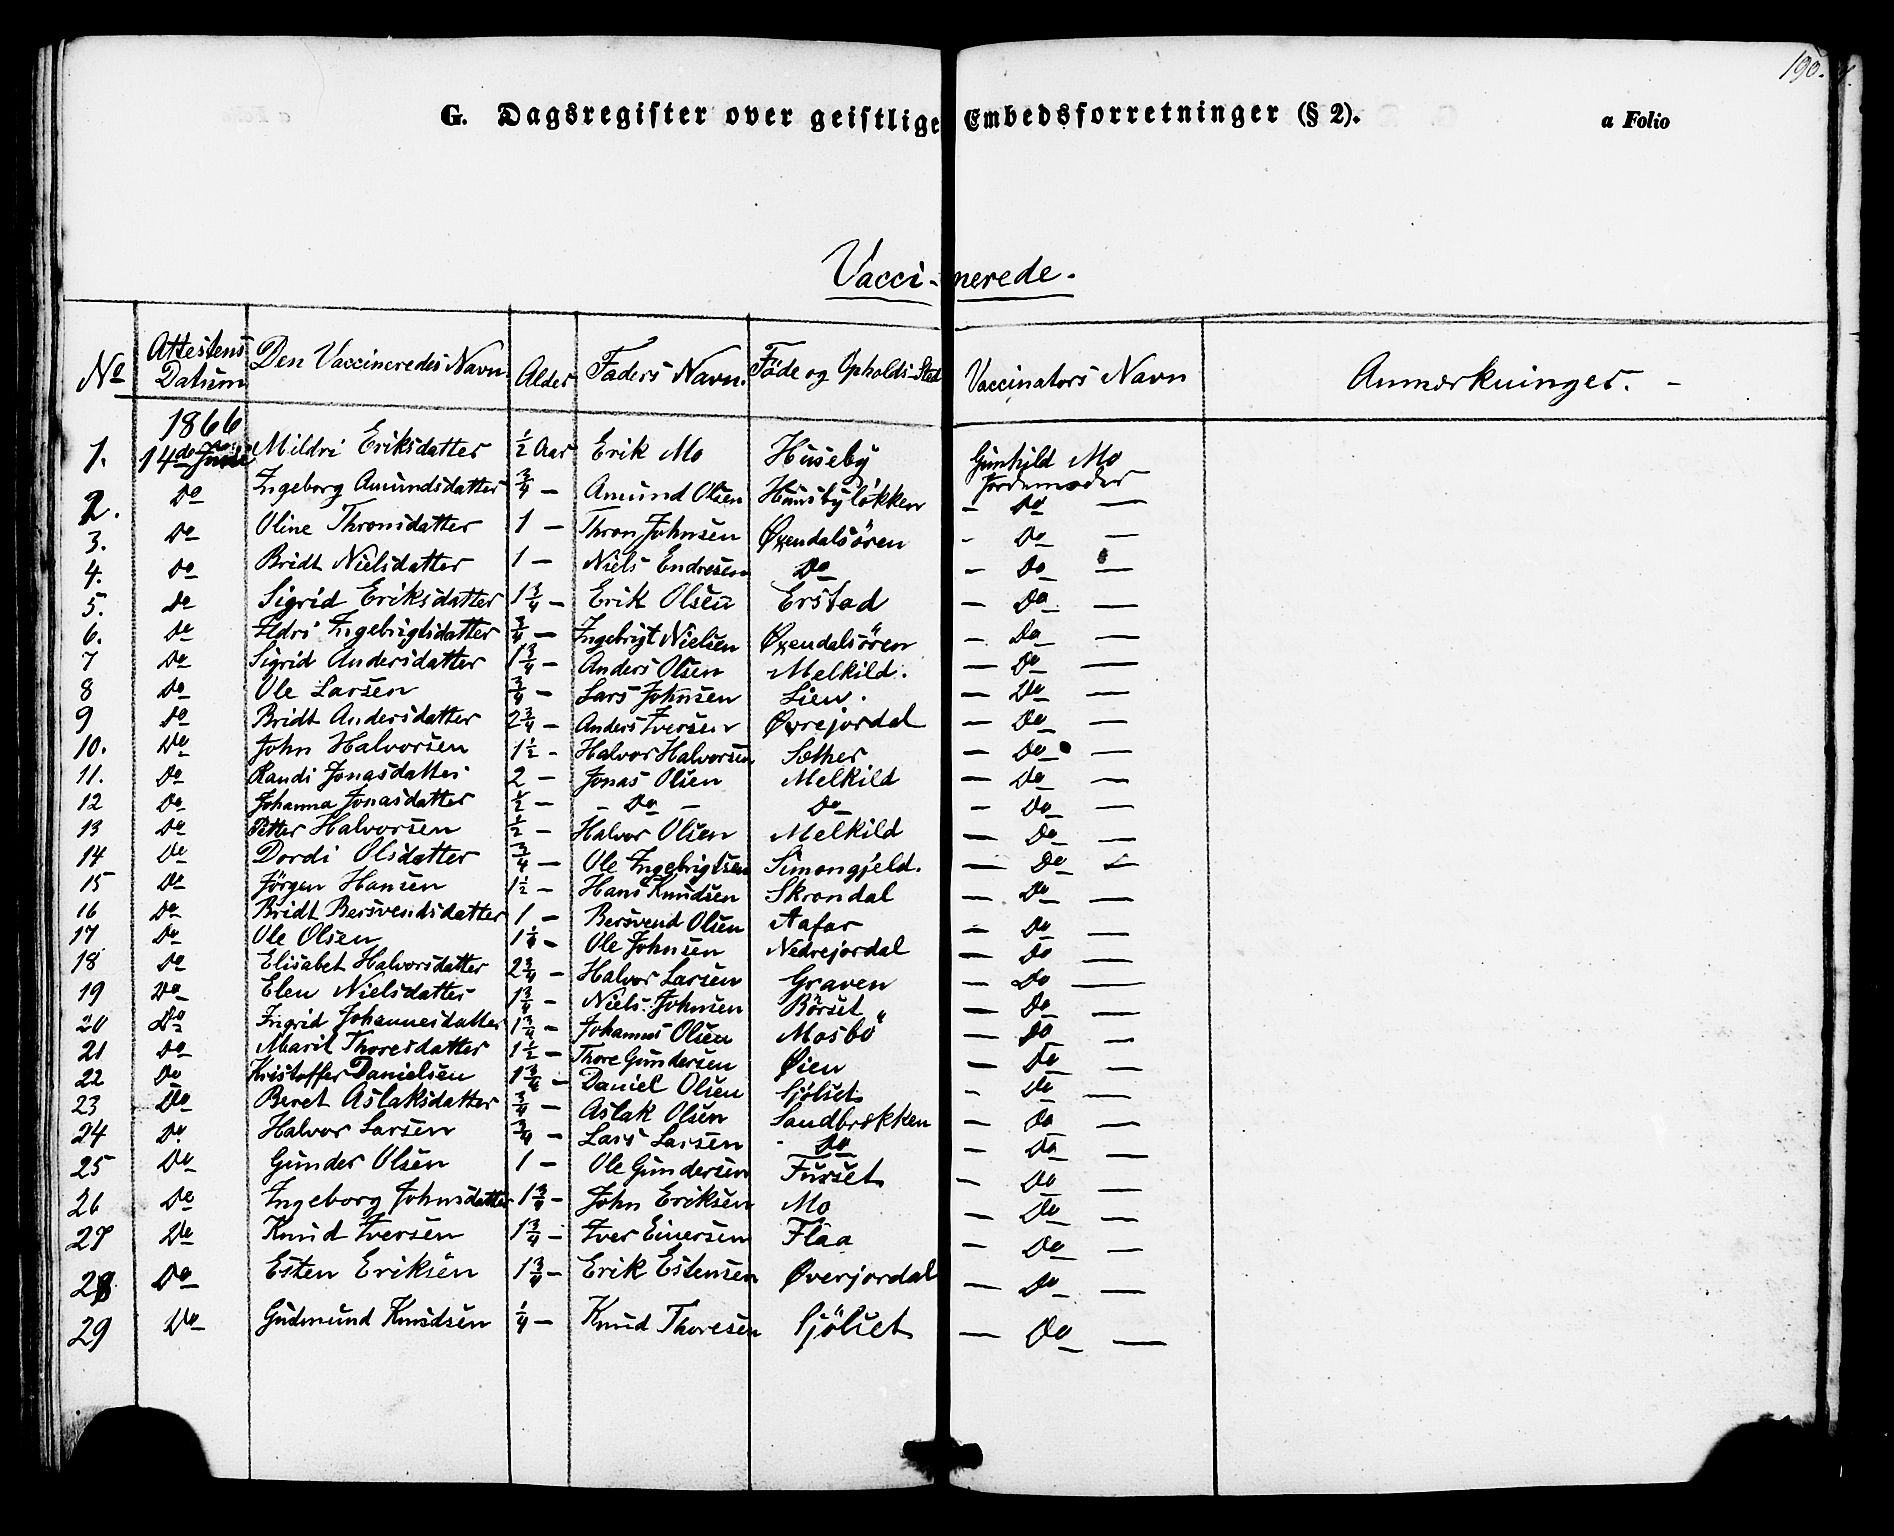 190.
G. Dagsregister over geistlige Embedsforretninger (§ 2). a Folio
Vacci-nerede.
No Attestens Datum Den Vaccineredes Navn Alder Faders Navn. Föde og Opholds Sted Vaccinators Navn Anmærkninger. -
1866
1. 14de Mildri Eriksdatter ½ Aar Erik Mo Huseby Gunhild Mo Jordemoder
2. Do Ingeborg Amundsdatter ¾ - Amund Olsen Huusbylökken - Do -
3. Do Oline Thronsdatter 1 - Thron Johnsen Øxendalsören - Do -
4. Do Bridt Nielsdatter 1 - Niels Endresen Do - Do -
5. Do Sigrid Eriksdatter 1¾ - Erik Olsen Erstad - Do -
6. Do Ildri Ingebrigtsdatter ¾ - Ingebrigt Nielsen Øxendalsören - Do -
7 Do Sigrid Andersdatter 1¾ - Anders Olsen Melkild. - Do -
8 Do Ole Larsen ¾ - Lars Johnsen Lien. - Do -
9 Do Bridt Andersdatter 2¾ - Anders Iversen Øvrejordal - Do -
10. Do John Halvorsen 1½ - Halvor Halvorsen Sæther - Do -
11. Do Randi Jonasdatter 2 - Jonas Olsen Melkild - Do -
12 Do Johanna Jonasdatter ½ - - Do - Do - Do -
13 Do Petter Halvorsen ½ - Halvor Olsen Melkild - Do -
14 Do Dordi Olsdatter ¾ - Ole Ingebrigtsen Simongjeld. - Do -
15 Do Jörgen Hansen 1½ - Hans Knudsen Skrondal - Do -
16 Do Bridt Bersvendsdatter 1 - Bersvend Olsen Aafar - Do -
17 Do Ole Olsen 1¼ - Ole Johnsen Nedrejordal - Do -
18 Do Elisabet Halvorsdatter 2¾ - Halvor Larsen Graven - Do -
19 Do Elen Nielsdatter 1¾ - Niels Johnsen Börset - Do -
20 Do Ingrid Johannesdatter 1¾ - Johannes Olsen Mosbö - Do -
21 Do Marit Thoresdatter 1½ - Thore Gundersen Øien - Do -
22 Do Kristoffer Danielsen 1¾ - Daniel Olsen Sjölset - Do -
23 Do Beret Aslaksdatter ¾ - Aslak Olsen Sandbrekken - Do -
24 Do Halvor Larsen ¾ - Lars Larsen - Do - Do -
25 Do Gunder Olsen 1 - Ole Gundersen Furset - Do -
26 Do Ingeborg Johnsdatter 1¾ - John Eriksen Mo - Do -
27 Do Knud Iversen 1¾ - Iver Einersen Flaa - Do -
28 Do Esten Eriksen 1¾ - Erik Estensen Øverjordal - Do -
29 Do Gudmund Knudsen ¼ - Knud Thoresen Sjölset - Do -